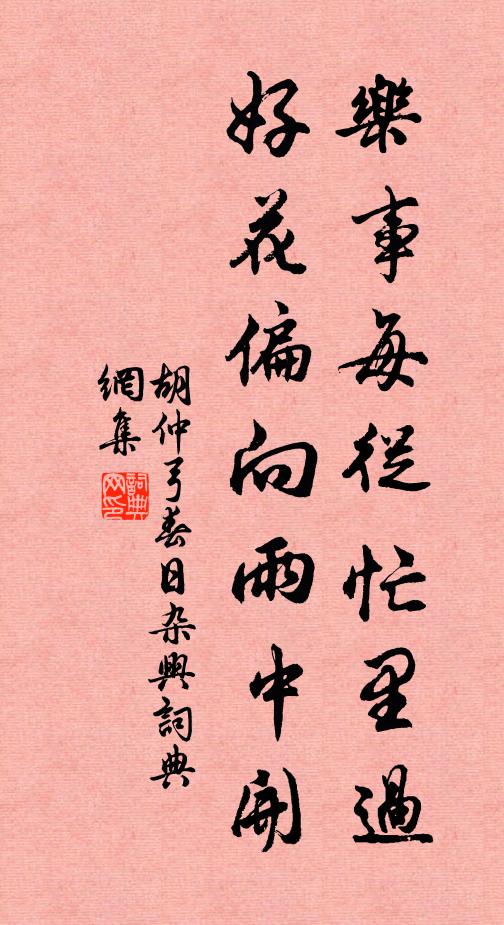 樂事每從忙里過
好花偏向雨中開
胡仲弓春日杂興詞典
網集
詞典网印